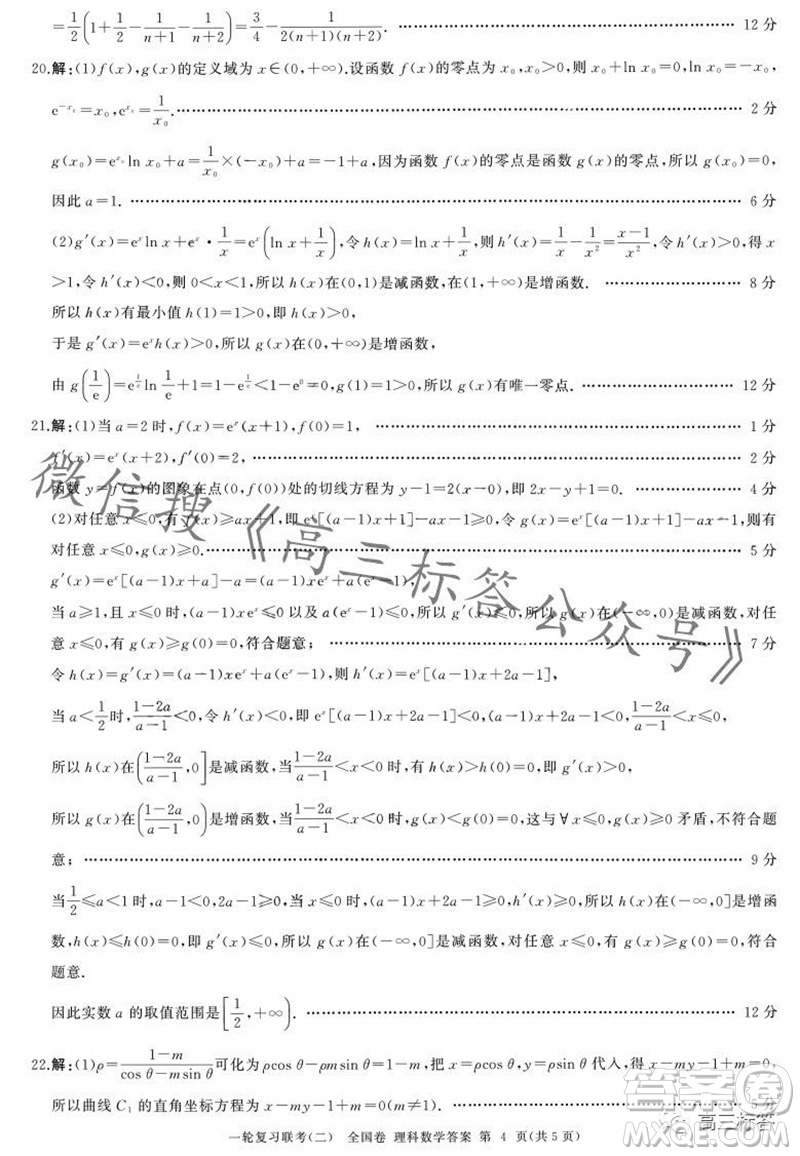 =1/2(1+1/2-1/(n+1)-1/(n+2))=3/4-1/(2(n+1)(n+2)). …… 12 分
20.解:(1)f(x),g(x)的定义域为 x∈(0,+∞).设函数 f(x)的零点为 x₀,x₀>0,则 x₀+ln x₀=0,ln x₀=-x₀,
e^{-x₀}=x₀,e^{x₀}=1/x₀. …… 2 分
g(x₀)=e^{x₀}ln x₀+a=1/x₀×(-x₀)+a=-1+a,因为函数 f(x)的零点是函数 g(x)的零点,所以 g(x₀)=0,
因此 a=1. …… 6 分
(2)g′(x)=eˣln x+eˣ·1/x=eˣ(ln x+1/x),令 h(x)=ln x+1/x,则 h′(x)=1/x-1/x²=(x-1)/x²,令 h′(x)>0,得 x
>1,令 h′(x)<0,则 0<x<1,所以 h(x)在(0,1)是减函数,在(1,+∞)是增函数. …… 8 分
所以 h(x)有最小值 h(1)=1>0,即 h(x)>0,
于是 g′(x)=eˣh(x)>0,所以 g(x)在(0,+∞)是增函数,
由 g(1/e)=e^{1/e}ln 1/e+1=-e^{1/e}+1<1-e⁰=0,g(1)=1>0,所以 g(x)有唯一零点. …… 12 分
21.解:(1)当 a=2 时,f(x)=eˣ(x+1),f(0)=1, …… 1 分
f′(x)=eˣ(x+2),f′(0)=2, …… 2 分
函数 y=f(x)的图象在点(0,f(0))处的切线方程为 y-1=2(x-0),即 2x-y+1=0. …… 4 分
(2)对任意 x≤0,有 f(x)≥ax+1,即 eˣ[(a-1)x+1]-ax-1≥0,令 g(x)=eˣ[(a-1)x+1]-ax-1,则有
对任意 x≤0,g(x)≥0. …… 5 分
g′(x)=eˣ[(a-1)x+a]-a=(a-1)xeˣ+a(eˣ-1),
当 a≥1,且 x≤0 时,(a-1)xeˣ≤0 以及 a(eˣ-1)≤0,所以 g′(x)≤0,所以 g(x)在(-∞,0)是减函数,对任
意 x≤0,有 g(x)≥g(0)=0,符合题意; …… 7 分
令 h(x)=g′(x)=(a-1)xeˣ+a(eˣ-1),所以 h′(x)=eˣ[(a-1)x+2a-1],
当 a<1/2时,(1-2a)/(a-1)<0,令 h′(x)<0,即 eˣ[(a-1)x+2a-1]<0,(a-1)x+2a-1<0,(1-2a)/(a-1)<x≤0,
所以 h(x)在((1-2a)/(a-1),0]是减函数,当(1-2a)/(a-1)<x<0 时,有 h(x)>h(0)=0,即 g′(x)>0,
所以 g(x)在((1-2a)/(a-1),0]是增函数,当(1-2a)/(a-1)<x<0 时,g(x)<g(0)=0,这与∀x≤0,g(x)≥0 矛盾,不符合题
意; …… 9 分
当1/2≤a<1 时,a-1<0,2a-1≥0,当 x≤0 时,(a-1)x+2a-1≥0,h′(x)≥0,所以 h(x)在(-∞,0]是增函
数,h(x)≤h(0)=0,即 g′(x)≤0,所以 g(x)在(-∞,0]是减函数,对任意 x≤0,有 g(x)≥g(0)=0,符合
题意.
因此实数 a 的取值范围是[1/2,+∞). …… 12 分
22.解:(1)ρ=(1-m)/(cos θ-m sin θ)可化为 ρcos θ-ρm sin θ=1-m,把 x=ρcos θ,y=ρsin θ 代入,得 x-my-1+m=0,
所以曲线 C₁ 的直角坐标方程为 x-my-1+m=0. …… 5 分
一轮复习联考(二) 全国卷 理科数学答案 第 4 页(共 5 页)
微信搜《高三标答公众号》
答案圈
高三标答